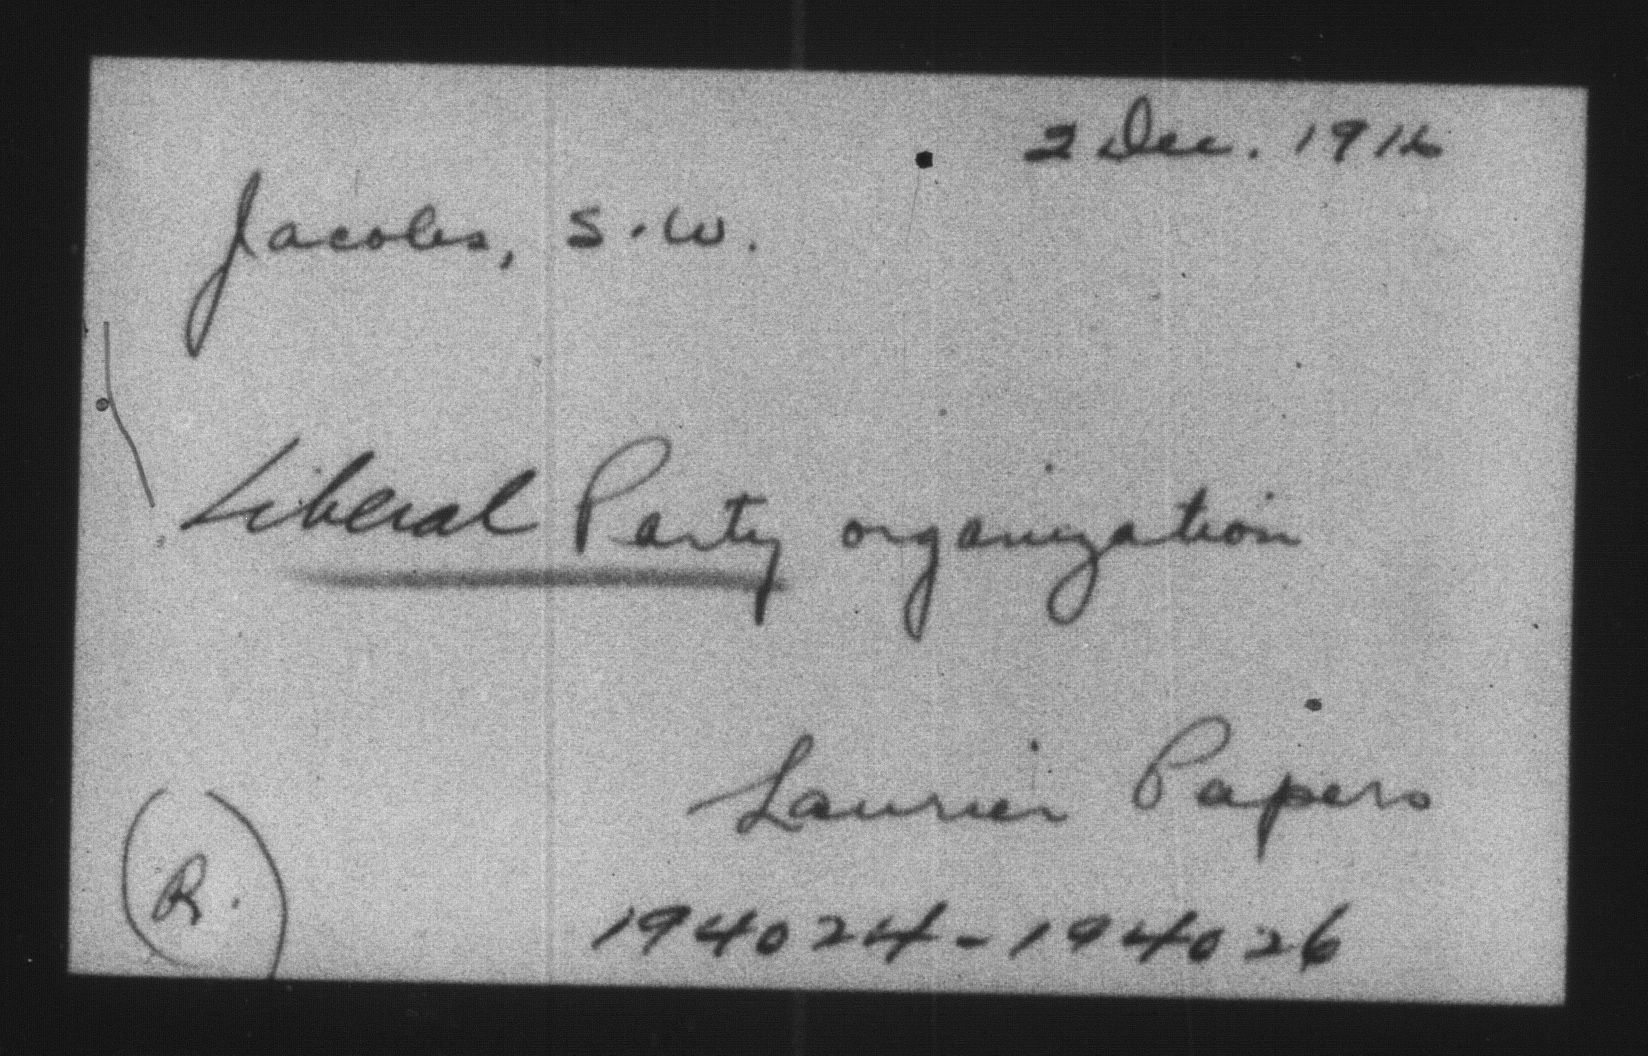 2 Dec. 1916
Jacobs, S.W.
Liberal Party organization
Laurier Papers
(R.)
194024-194026